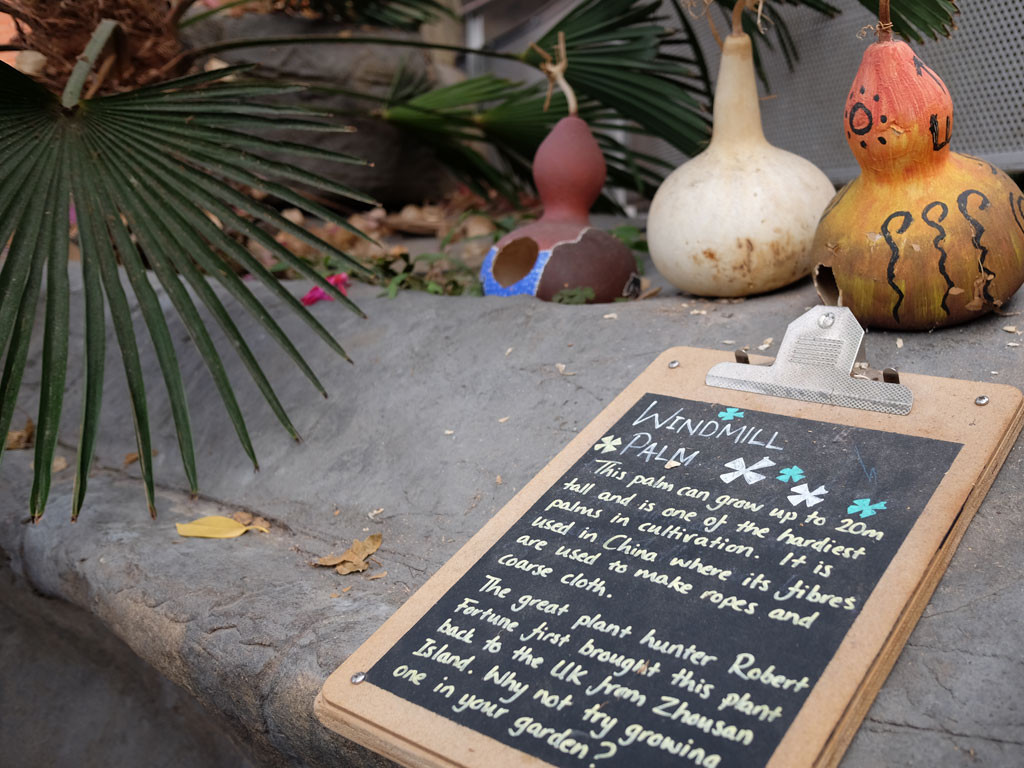 WINDMILL
PALM
This palm can grow up to 20m
tall and is one of the hardiest
palms in cultivation. It is
used in China where its fibres
are used to make ropes and
coarse cloth.
The great plant hunter Robert
Fortune first brought this plant
back to the UK from Zhousan
Island. Why not try growing
one in your garden?